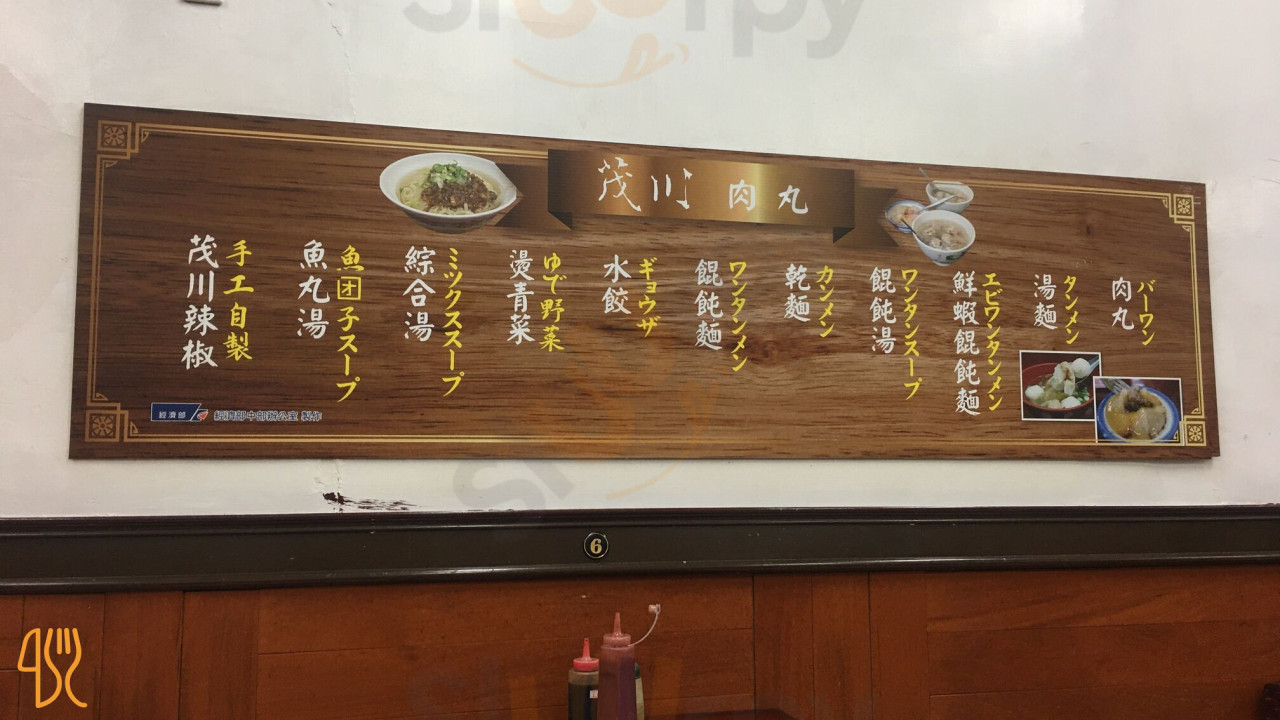 Sluurpy
茂川 肉丸
バーワン
肉丸
タンメン
湯麵
エビワンタンメン
鮮蝦餛飩麵
ワンタンスープ
餛飩湯
カンメン
乾麵
ワンタンメン
餛飩麵
ギョウザ
水餃
ゆで野菜
燙青菜
ミックススープ
綜合湯
魚団子スープ
魚丸湯
手工自製
茂川辣椒
經濟部
經濟部中部辦公室 製作
6